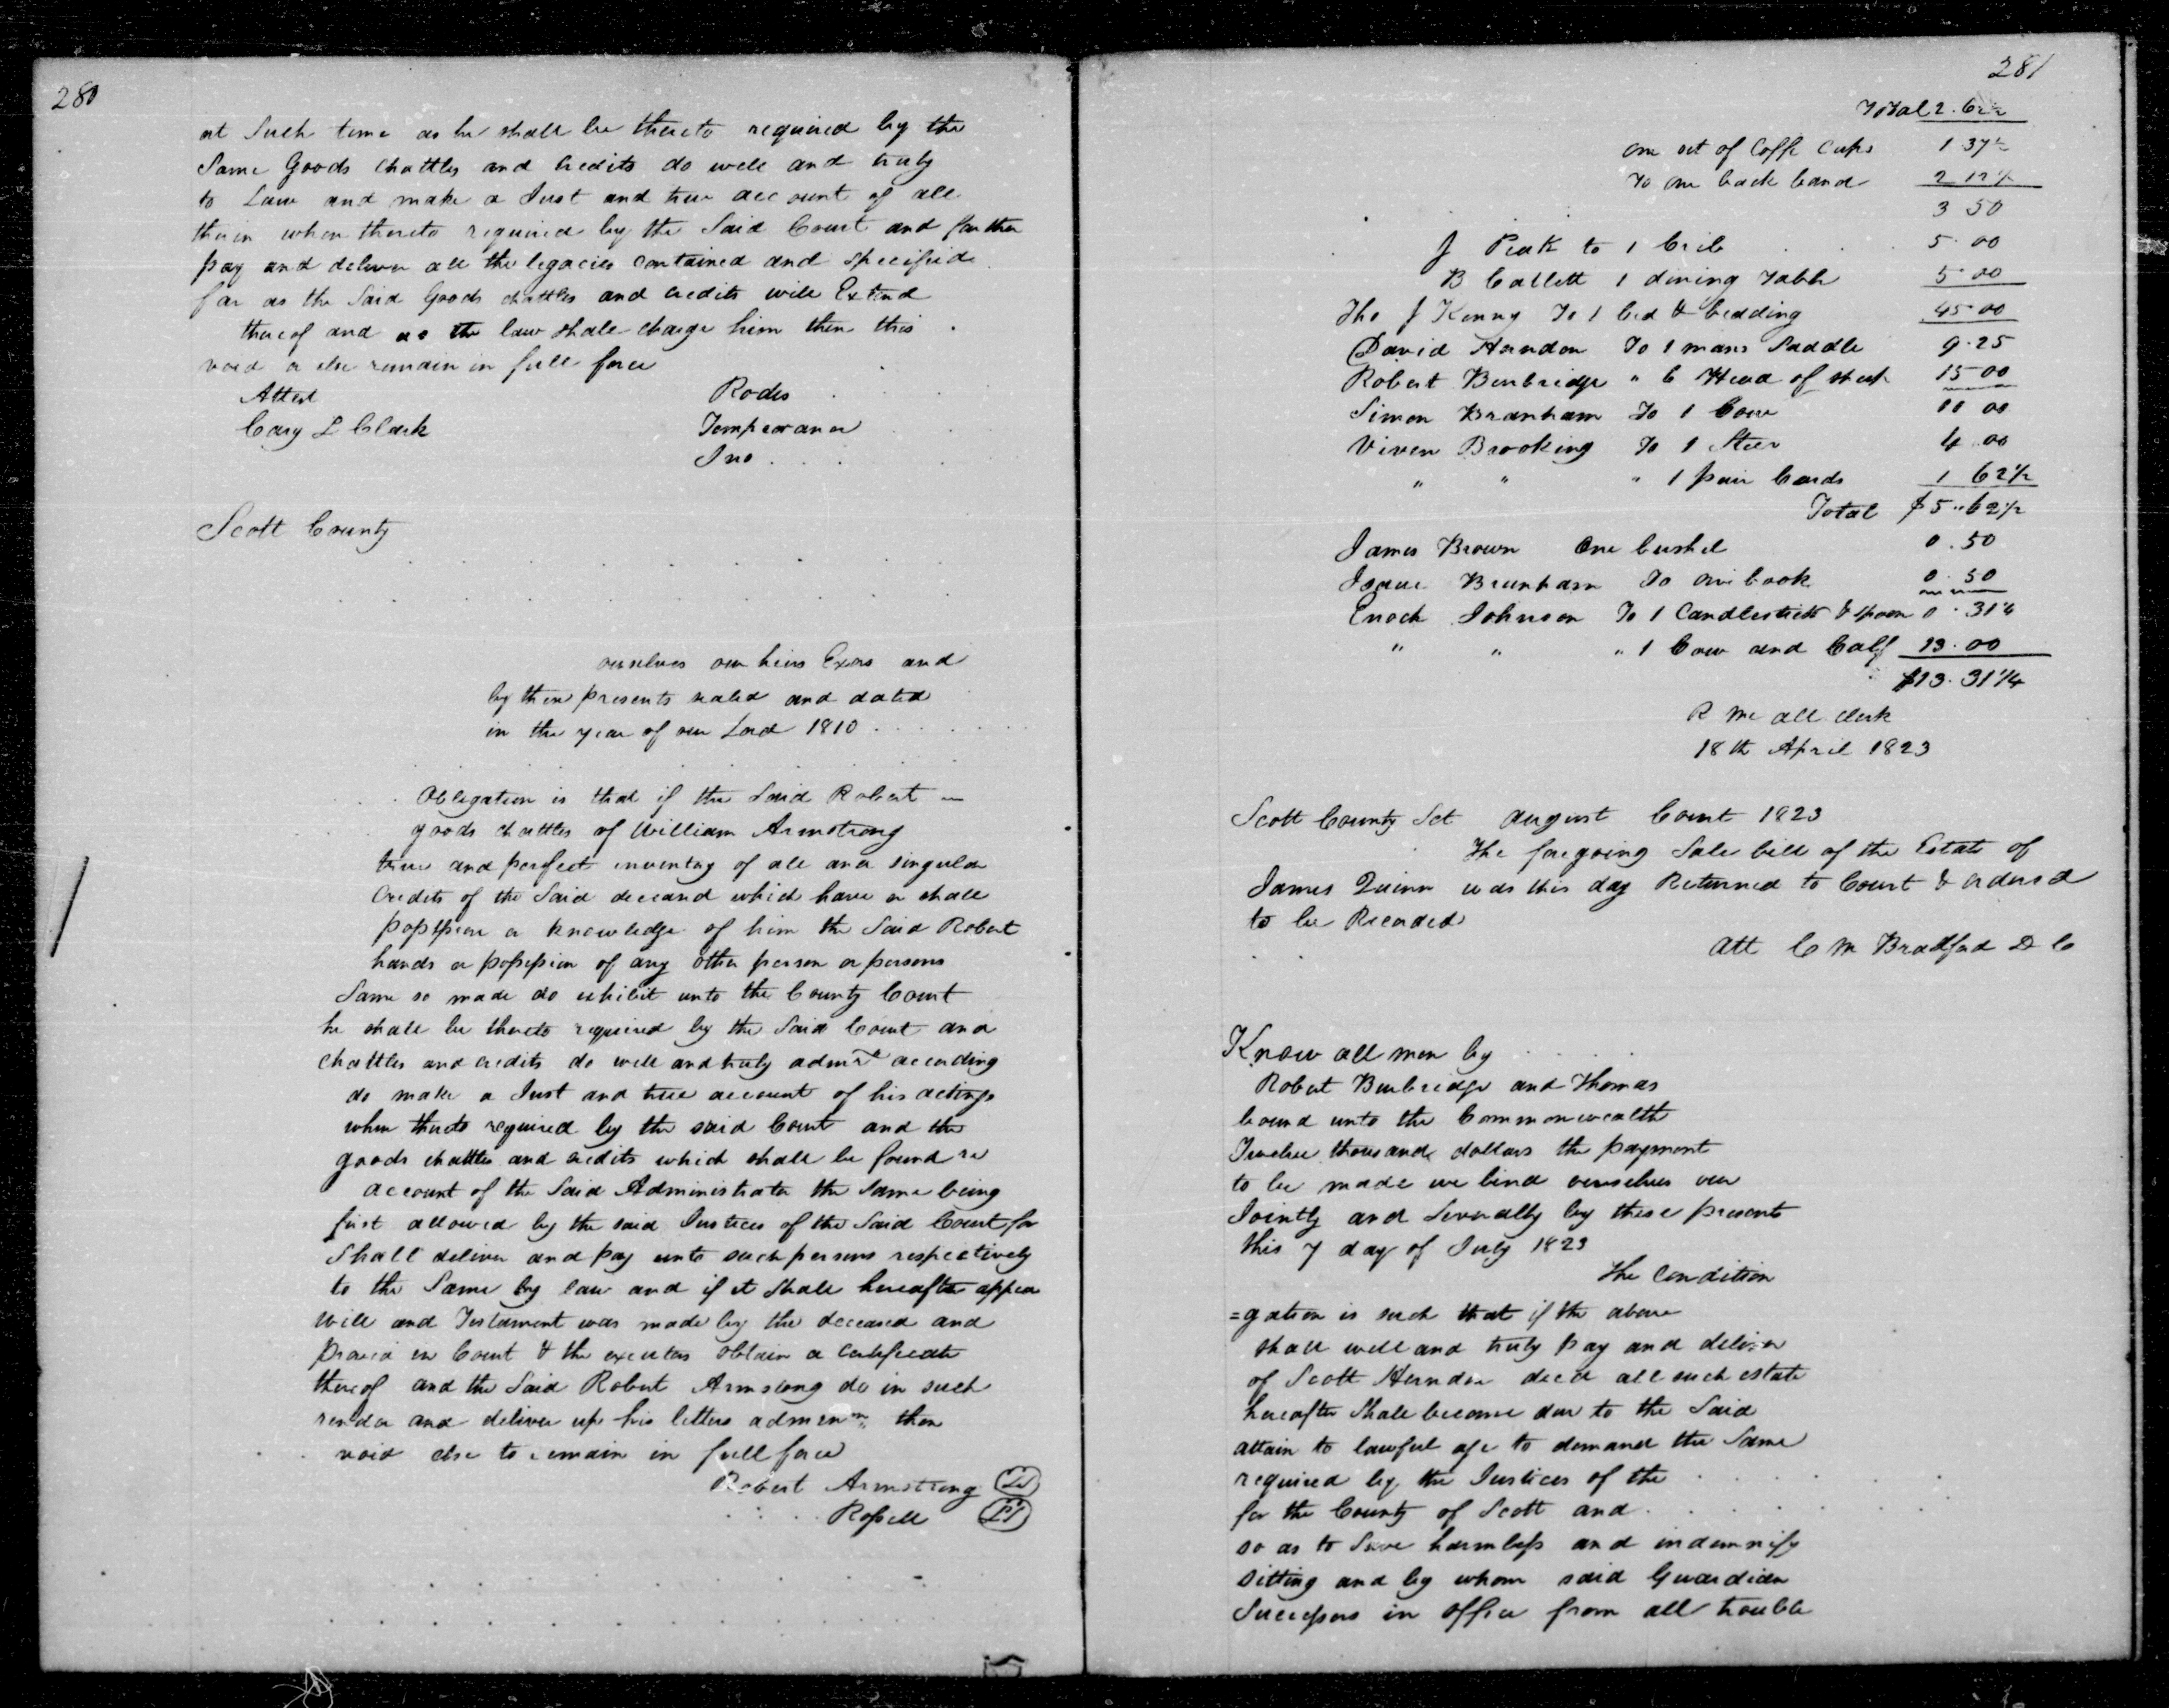 280
at Such time as he shall be thereto required by the
Same Goods chattles and credits do well and truly
to Law and make a Just and true account of all
therin when thereto required by the Said Court and farther
pay and deliver all the legacies contained and specified
far as the Said Goods chattles and credits will Extend
thereof and as the law shall charge him then this
void or else remain in full force
Attest Rodes
Cary L Clark Temperance
Jno
Scott County
ourselves our heirs Exors and
by these presents sealed and dated
in the year of our Lord 1810
Obligation is that if the Said Robert
goods chattles of William Armstrong
true and perfect inventory of all and singular
Credits of the Said deceasd which have or shall
possession or knowledge of him the Said Robert
hands or possession of any other person or persons
Same so made do exhibit unto the County Court
he shall be thereto required by the Said Court and
chattles and credits do well and truly admr according
do make a Just and true account of his actings
when thereto required by the said Court and the
goods chattles and credits which shall be found re
account of the Said Administrator the Same being
first allowed by the said Justices of the Said Court for
Shall deliver and pay unto such persons respectively
to the Same by law and if it shall hereafter appear
Will and Testament was made by the deceased and
proved in Court & the executors obtain a certificate
thereof and the Said Robert Armstong do in such
render and deliver up his letters adminn then
void else to remain in full force
Robert Armstrong LS
Rossell LS
281
Total 2.62½
one set of Coffe Cups 1 37½
To one back band 2 12½
3 50
J Peak to 1 Crib 5.00
B Catlett 1 dining Table 5.00
Tho J Kenny To 1 bed & bedding 45.00
David Herndon To 1 mans Saddle 9.25
Robert Burbridge " 6 Head of sheep 15 00
Simon Branham To 1 Cow 11 00
Viven Brooking To 1 Steer 4.00
" " " 1 pair Cards 1 62½
Total $5.62½
James Brown One bushel 0.50
Isaac Brunham To one book 0.50
Enoch Johnson To 1 Candlestick & spoon 0.31¼
" " " 1 Cow and Calf 13.00
$13.31¼
R Mc all clerk
18th April 1823
Scott County Sct August Court 1823
The foregoing Sale bill of the Estate of
James Quinn was this day Returned to Court & ordered
to be Recorded
Att C M Bradford D C
Know all men by
Robert Burbridge and Thomas
bound unto the Commonwealth
Twelve thousand dollars the payment
to be made we bind ourselves our
Jointly and Severally by these presents
this 7 day of July 1823
The Condition
=gation is such that if the above
shall well and truly pay and deliver
of Scott Herndon decd all such estate
hereafter Shall become due to the Said
attain to lawful age to demand the Same
required by the Justices of the
for the County of Scott and
so as to Save harmless and indemnify
sitting and by whom said Guardian
Successors in office from all trouble